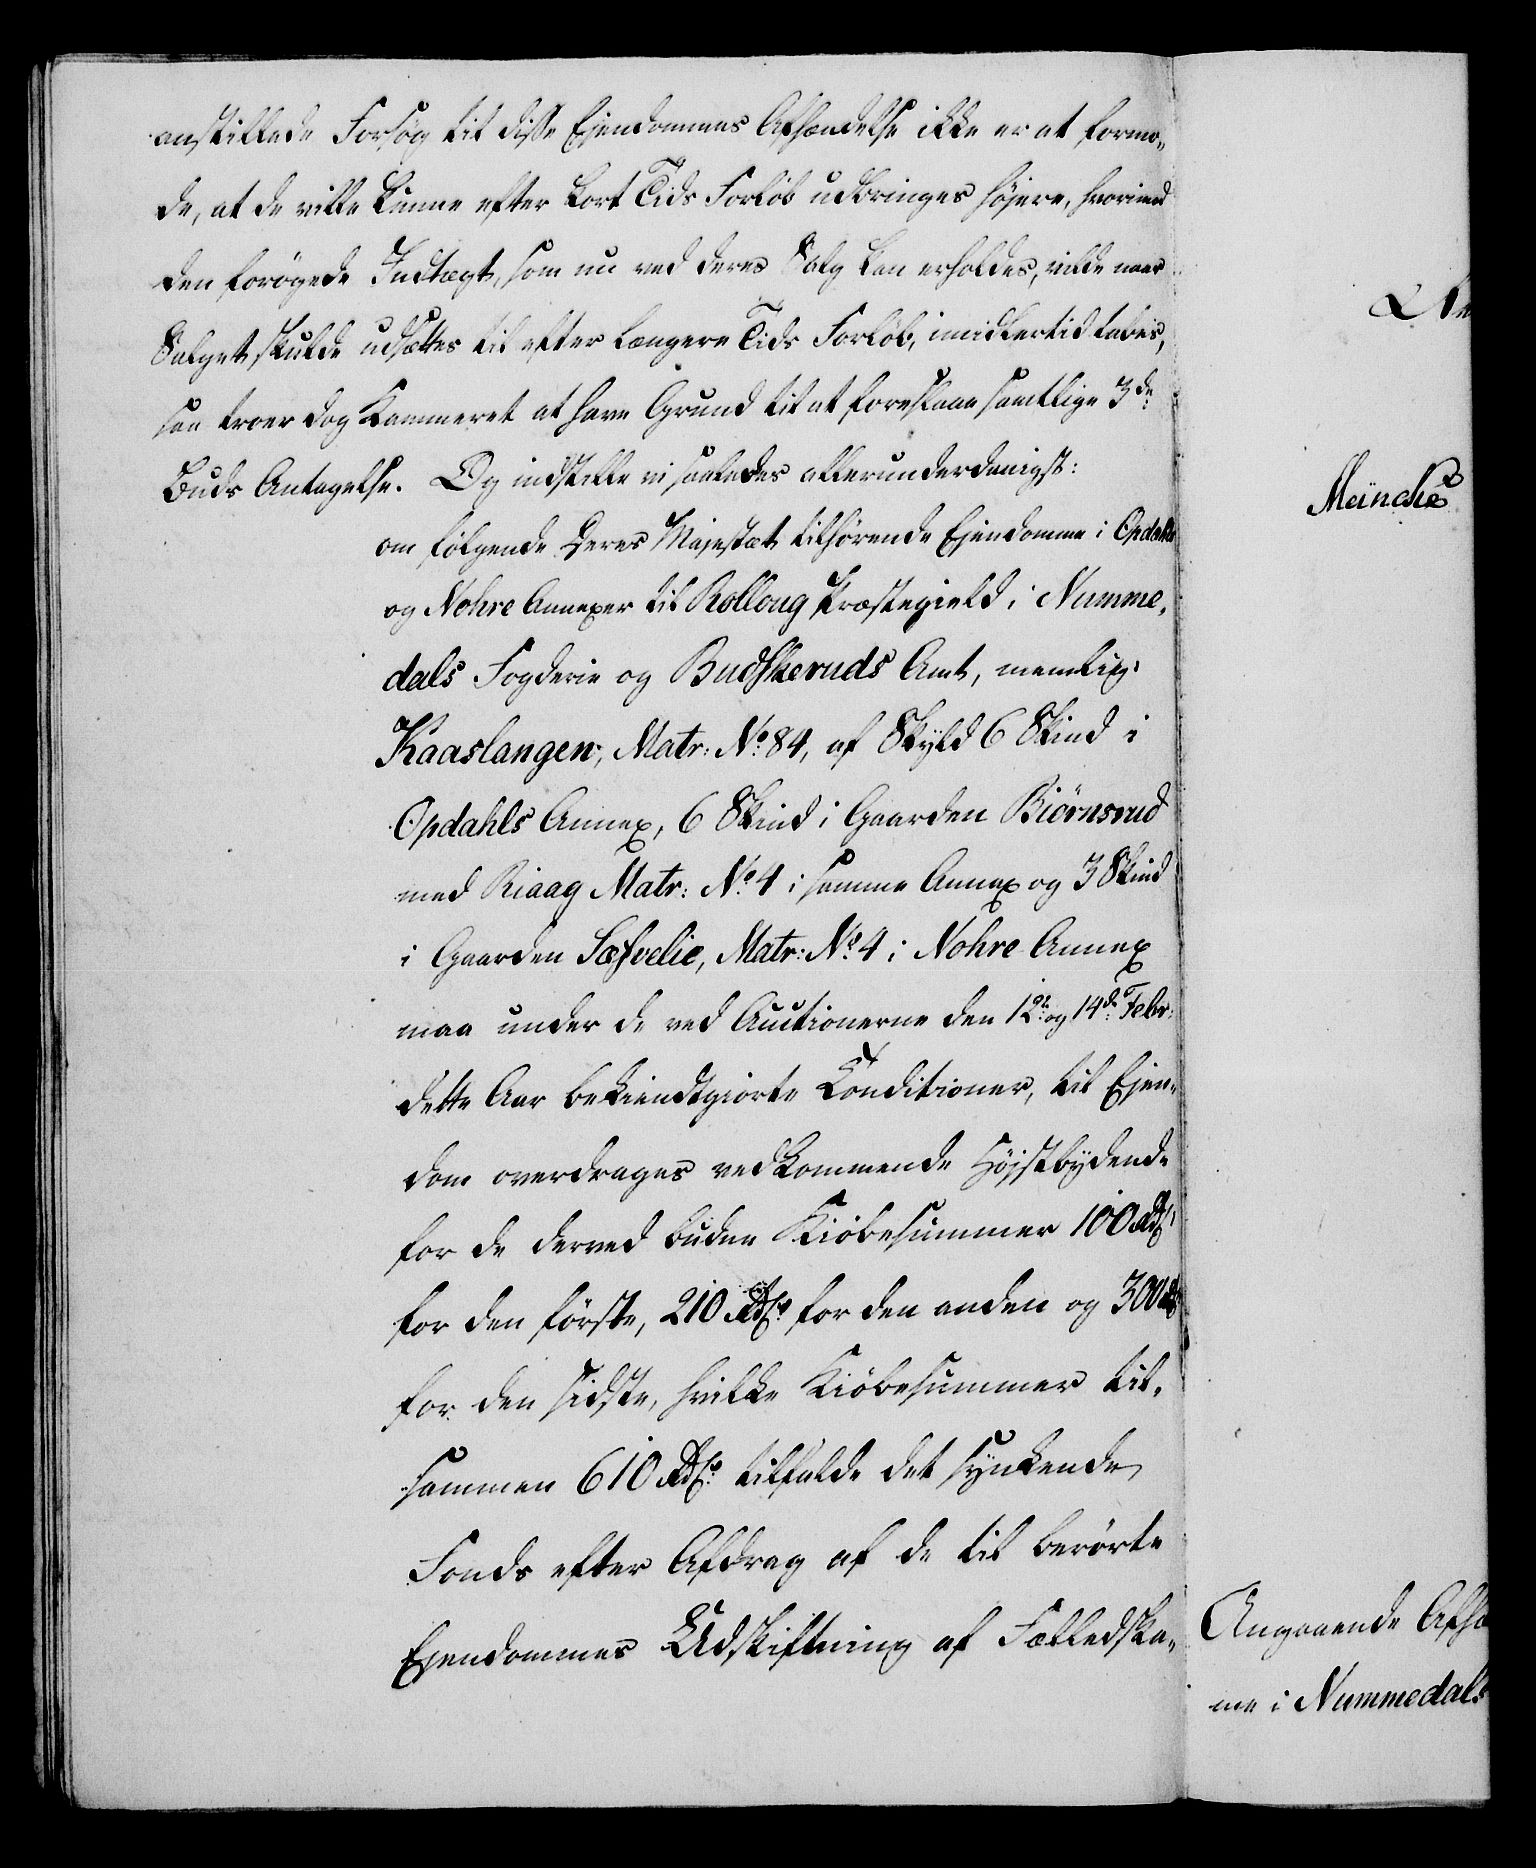 anstillede Forsøg til disse Ejendommes Afhændelse ikke er at formo-
de, at de ville kunne efter kort Tids Forløb udbringes højere, hvorimod
den forøgede Indtægt, som nu ved deres Salg kan erholdes, vilde naar
Salget skulde udsættes til efter længere Tids Forløb, imidlertid tabes,
saa troer dog Kammeret at have Grund til at foreslaae samtlige 3de
Buds Antagelse. Og indstille vi saaledes allerunderdanigst:
om følgende Deres Majestæt tilhørende Ejendomme i Opdahls
og Nohre Annexer til Rolloug Præstegield i Numme-
dals Fogderie og Budskeruds Amt, nemlig:
Kaaslangen, Matr: No. 84, af Skyld 6 Skind i
Opdahls Annex, 6 Skind i Gaarden Biörnsrud
med Riaag Matr: No. 4 i samme Annex og 3 Skind
i Gaarden Sæsvelie, Matr: No. 4 i Nohre Annex
maa under de ved Auctionerne den 12te og 14de Febr:
dette Aar bekiendtgiorte Conditioner, til Ejen-
dom overdrages vedkommende Højstbydende
for de derved budne Kiøbesummer 100 Rdlr
for den første, 210 Rdlr for den anden og 300 Rdlr
for den sidste, hvilke Kiøbesummer til-
sammen 610 Rdlr tilfalde det synkende
Fonds efter Afdrag af de til berørte
Ejendommes Udskiftning af Fælledska-
Meinche
Angaaende Afhæ
me i Nummedals